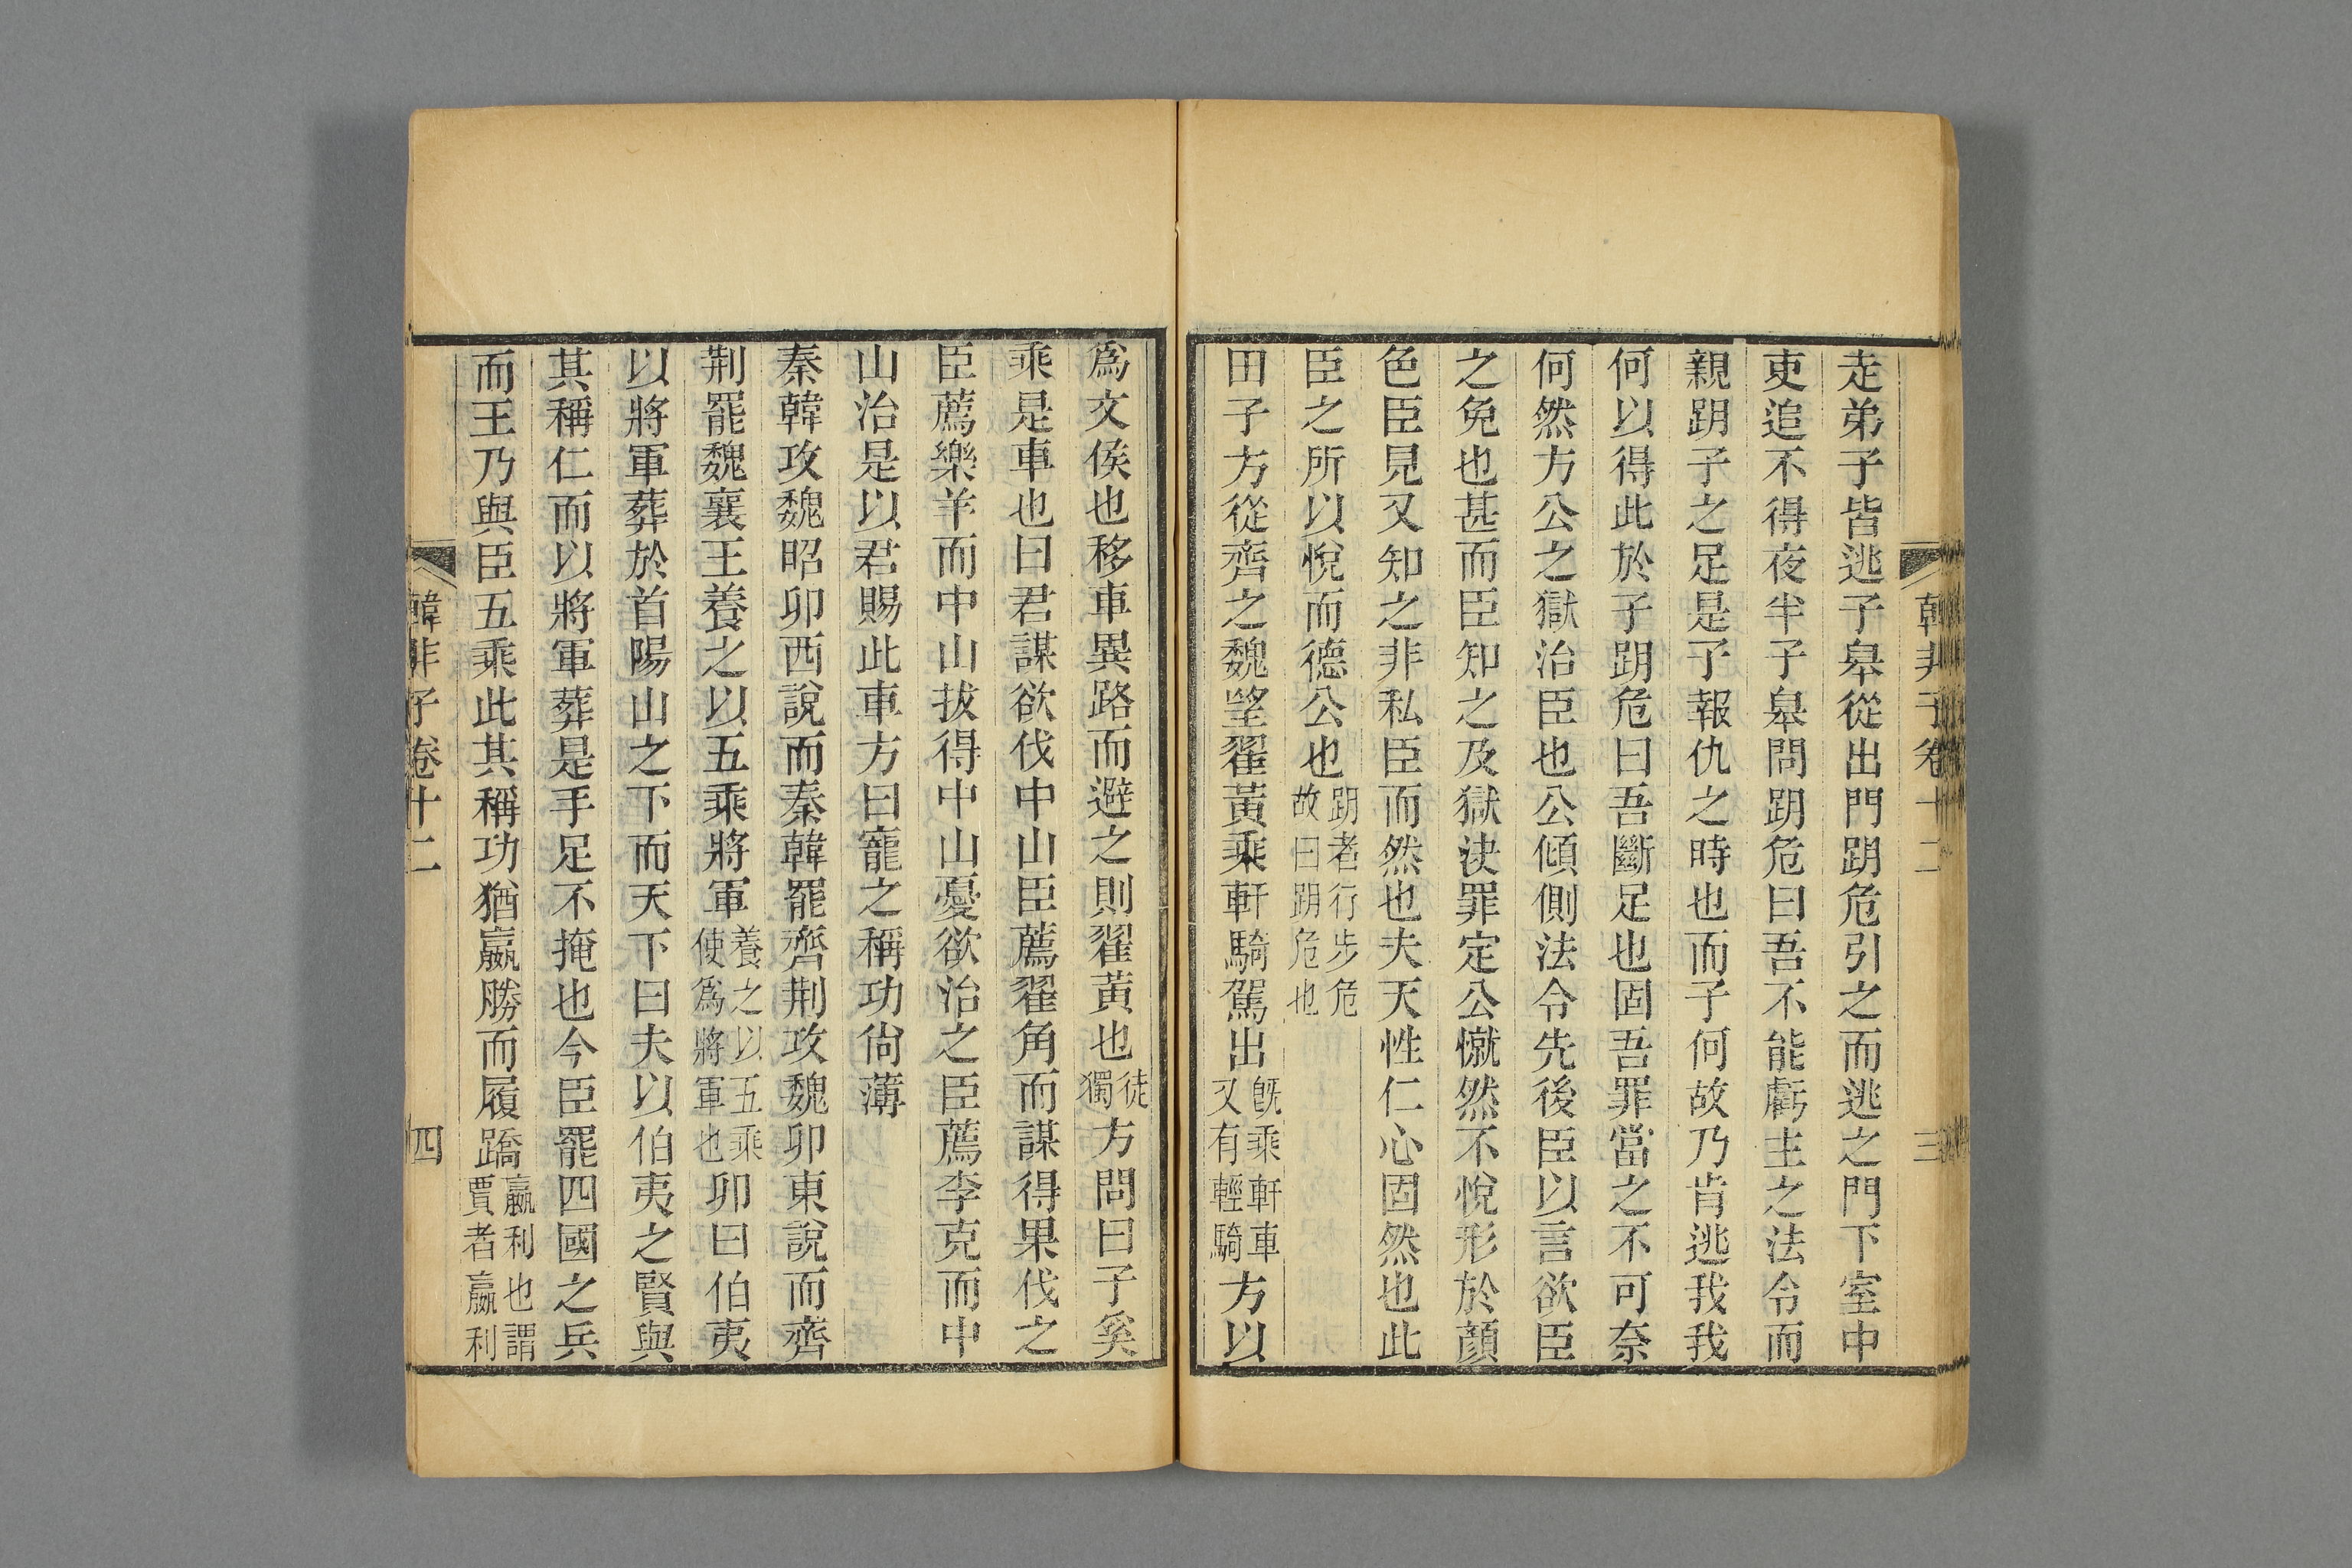 韓非子卷十二 三
走弟子皆逃子皋從出門跀危引之而逃之門下室中
吏追不得夜半子皋問跀危曰吾不能虧主之法令而
親跀子之足是子報仇之時也而子何故乃肯逃我我
何以得此於子跀危曰吾斷足也固吾罪當之不可奈
何然方公之獄治臣也公傾側法令先後臣以言欲臣
之免也甚而臣知之及獄決罪定公憱然不悅形於顏
色臣見又知之非私臣而然也夫天性仁心固然也此
臣之所以悅而德公也跀者行步危故曰跀危也
田子方從齊之魏望翟黃乘軒騎駕出旣乘軒車又有輕騎方以
爲文侯也移車異路而避之則翟黃也徒獨方問曰子奚
乘是車也曰君謀欲伐中山臣薦翟角而謀得果伐之
臣薦樂羊而中山拔得中山憂欲治之臣薦李克而中
山治是以君賜此車方曰寵之稱功尙薄
秦韓攻魏昭卯西說而秦韓罷齊荆攻魏卯東說而齊
荆罷魏襄王養之以五乘將軍養之以五乘使爲將軍也卯曰伯夷
以將軍葬於首陽山之下而天下曰夫以伯夷之賢與
其稱仁而以將軍葬是手足不掩也今臣罷四國之兵
而王乃與臣五乘此其稱功猶嬴勝而履蹻嬴利也謂賈者嬴利
韓非子卷十二 四